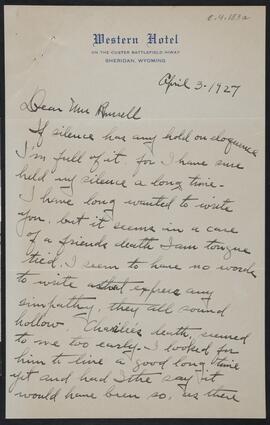 C.4.183a
Western Hotel
ON THE CUSTER BATTLEFIELD HIWAY
SHERIDAN, WYOMING
April 3-1927
Dear Mrs Russell
If silence has any hold on eloquence
I'm full of it for I have sure
held my silence a long time-
I have long wanted to write
you, but it seems in a case
of a friends death I am tongue
tied. I seem to have no words
to write that express any
simpathy, they all sound
hollow. Charlies death, seemed
to me too early- I looked for
him to live a good long time
yet and had I the say it
would have been so, as there